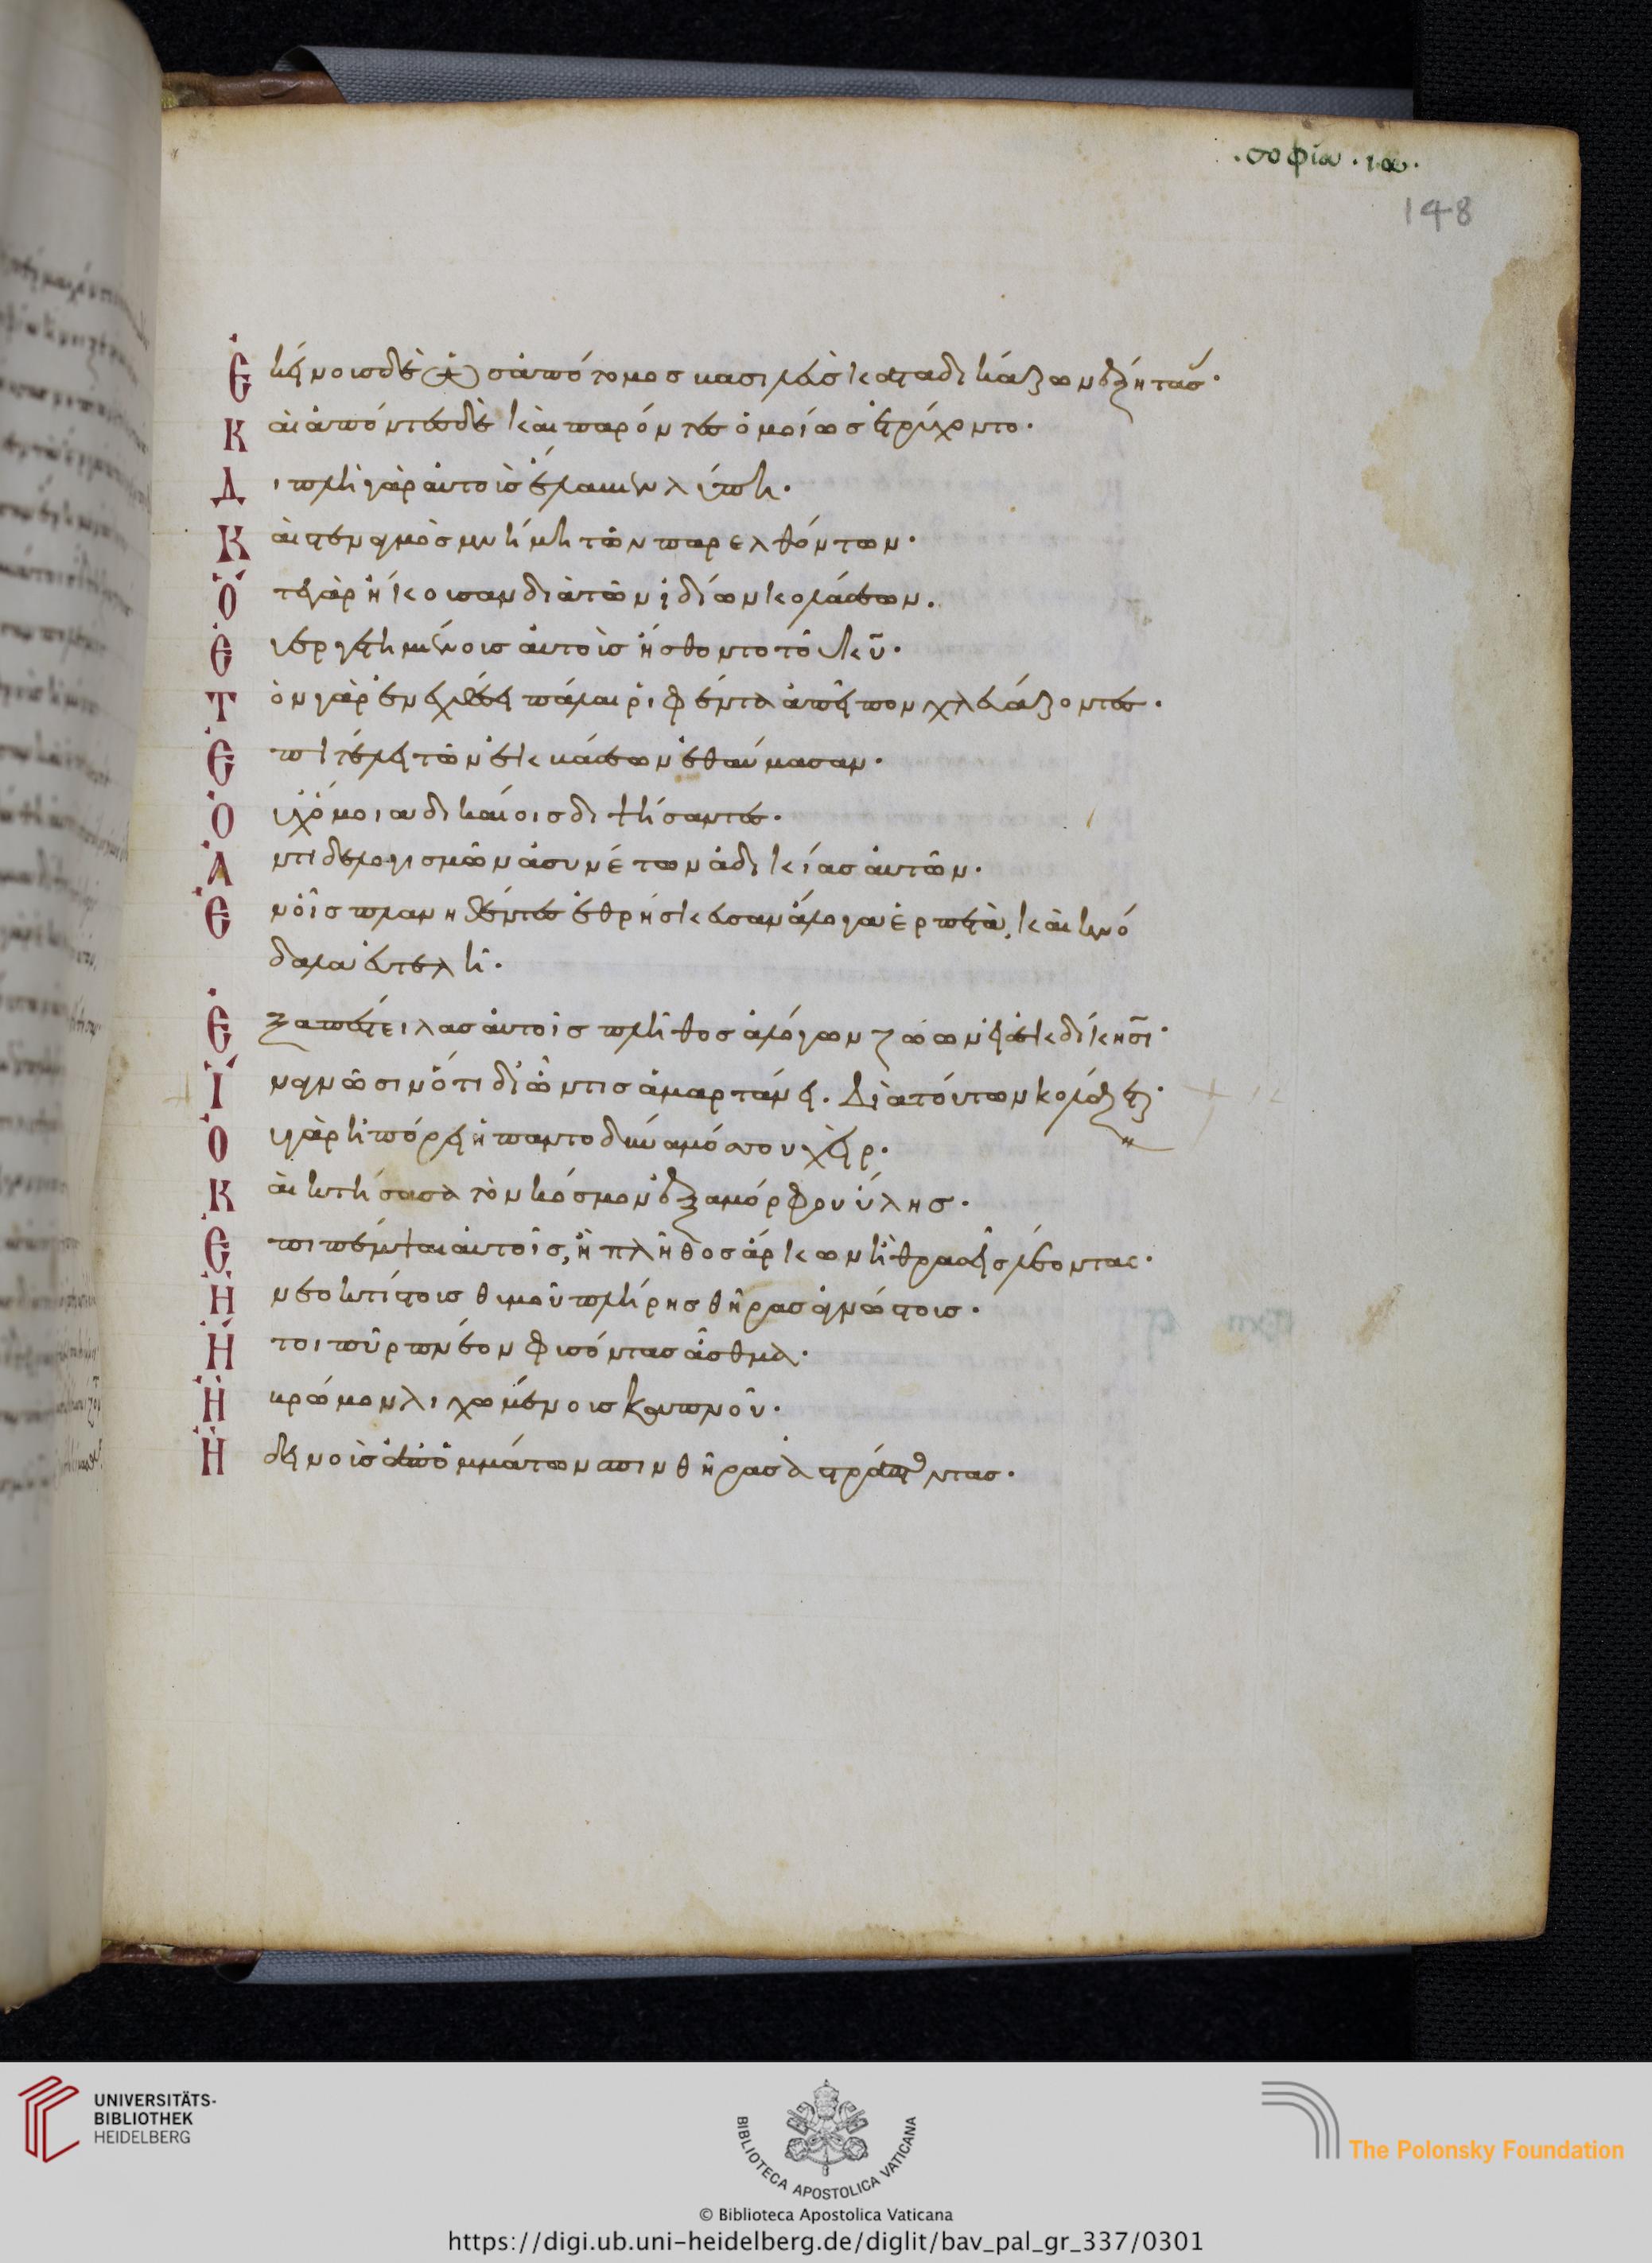 .σοφία . ια.
148
Ἐκείνοις δὲ ὡς ἀπότομος βασιλεὺς καταδικάζων ἐξήτασ·
Καὶ ἀπόντες δὲ καὶ παρόντες ὁμοίως ἐτρύχοντο·
Διπλῆ γὰρ αὐτοὺς ἔλαβεν λύπη·
Καὶ στεναγμὸς μνήμη τῶν παρελθόντων·
Ὅτε γὰρ ἤκουσαν διὰ τῶν ἰδίων κολάσεων.
Εὐεργετημένους αὐτοὺς ἤσθοντο τοῦ κυ·
Τὸν γὰρ ἐν ἐχθέσει πάλαι ῥιφέντα ἀπεῖπον χλευάζοντες·
Ἐπὶ τέλει τῶν ἐκβάσεων ἐθαύμασαν·
Οὐχ ὅμοια δικαίοις διψήσαντες·
Ἀντὶ δὲ λογισμῶν ἀσυνέτων ἀδικίας αὐτῶν·
Ἐν οἷς πλανηθέντες ἐθρήσκευσαν ἄλογα ἑρπετὰ, καὶ κνώ
δαλα εὐτελῆ·
Ἐξαπέστειλας αὐτοῖς πλῆθος ἀλόγων ζώων εἰς ἐκδίκησι·
Ἵνα γνῶσιν ὅτι δι' ὧν τις ἁμαρτάνει. Διὰ τούτων κολάζεται·
Οὐ γὰρ ἠπόρει ἡ παντοδύναμός σου χείρ·
Καὶ κτίσασα τὸν κόσμον ἐξ ἀμόρφου ὕλης·
Ἐπιπέμψαι αὐτοῖς, ἢ πλῆθος ἄρκων ἢ θρασεῖς λέοντας·
Ἢ νεοκτίστους θυμοῦ πλήρης θῆρας ἀγνώστους·
Ἤτοι πῦρ πνέον φυσόντας ἆσθμα·
Ἢ βρώμον λιχωμένους καπνοῦ·
Ἢ δεινοὺς ἀπὸ ὀμμάτων σπινθῆρας ἀστράπτοντας·
UNIVERSITÄTS-
BIBLIOTHEK
HEIDELBERG
BIBLIOTECA APOSTOLICA VATICANA
The Polonsky Foundation
© Biblioteca Apostolica Vaticana
https://digi.ub.uni-heidelberg.de/diglit/bav_pal_gr_337/0301